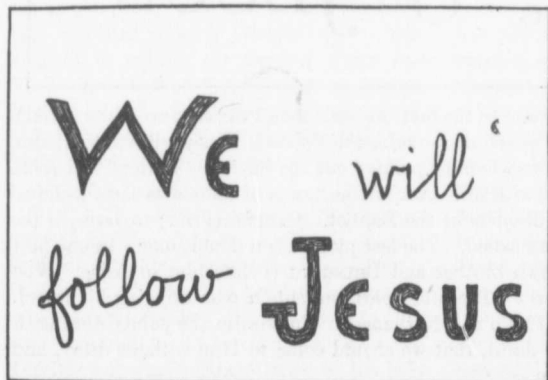 We will
follow Jesus